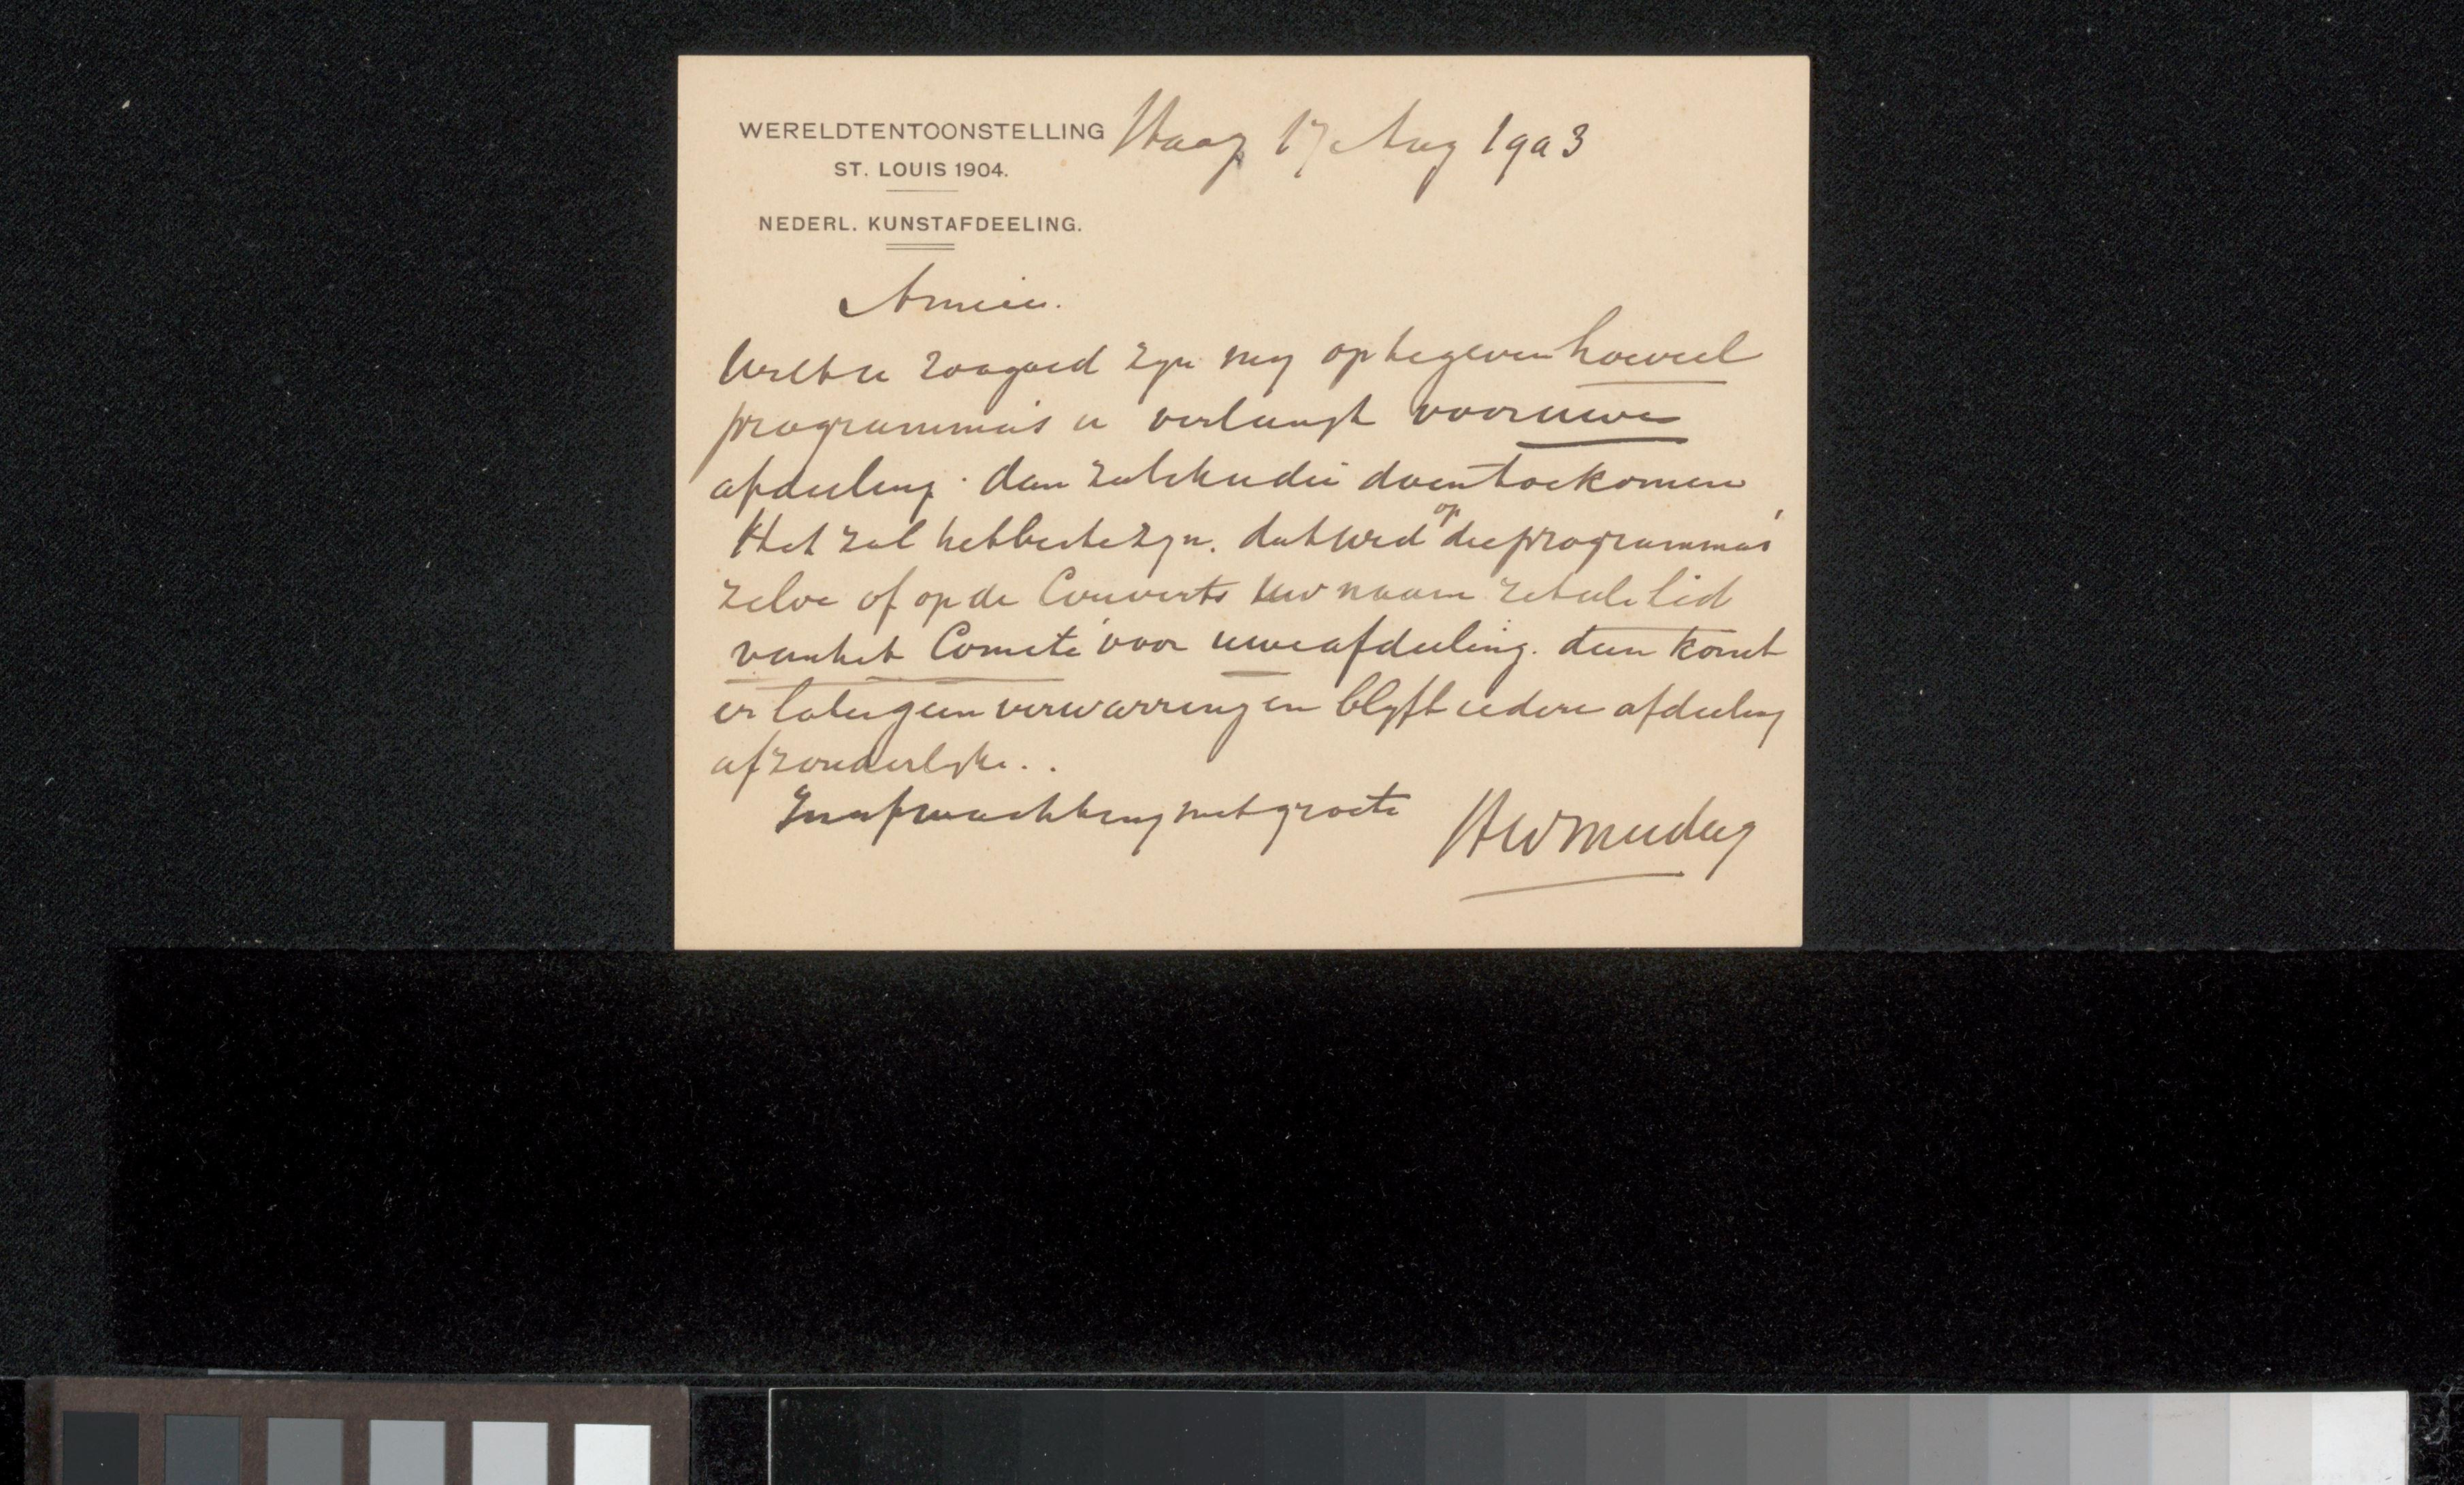 WERELDTENTOONSTELLING
ST. LOUIS 1904.
NEDERL. KUNSTAFDEELING.
Haag 17 Aug 1903
Amice.
Wilt u zoo goed zyn my op te geven hoeveel
programma's u verlangt voor uwe
afdeeling. dan zal ik u die doen toekomen
Het zal het beste zyn. dat u op die programma's
zelve of op de Couverts uw naam zet als lid
van het Comité voor uwe afdeeling. dan komt
er later geen verwarring en blyft iedere afdeeling
afzonderlyk..
In afwachting met groete
HWMesdag